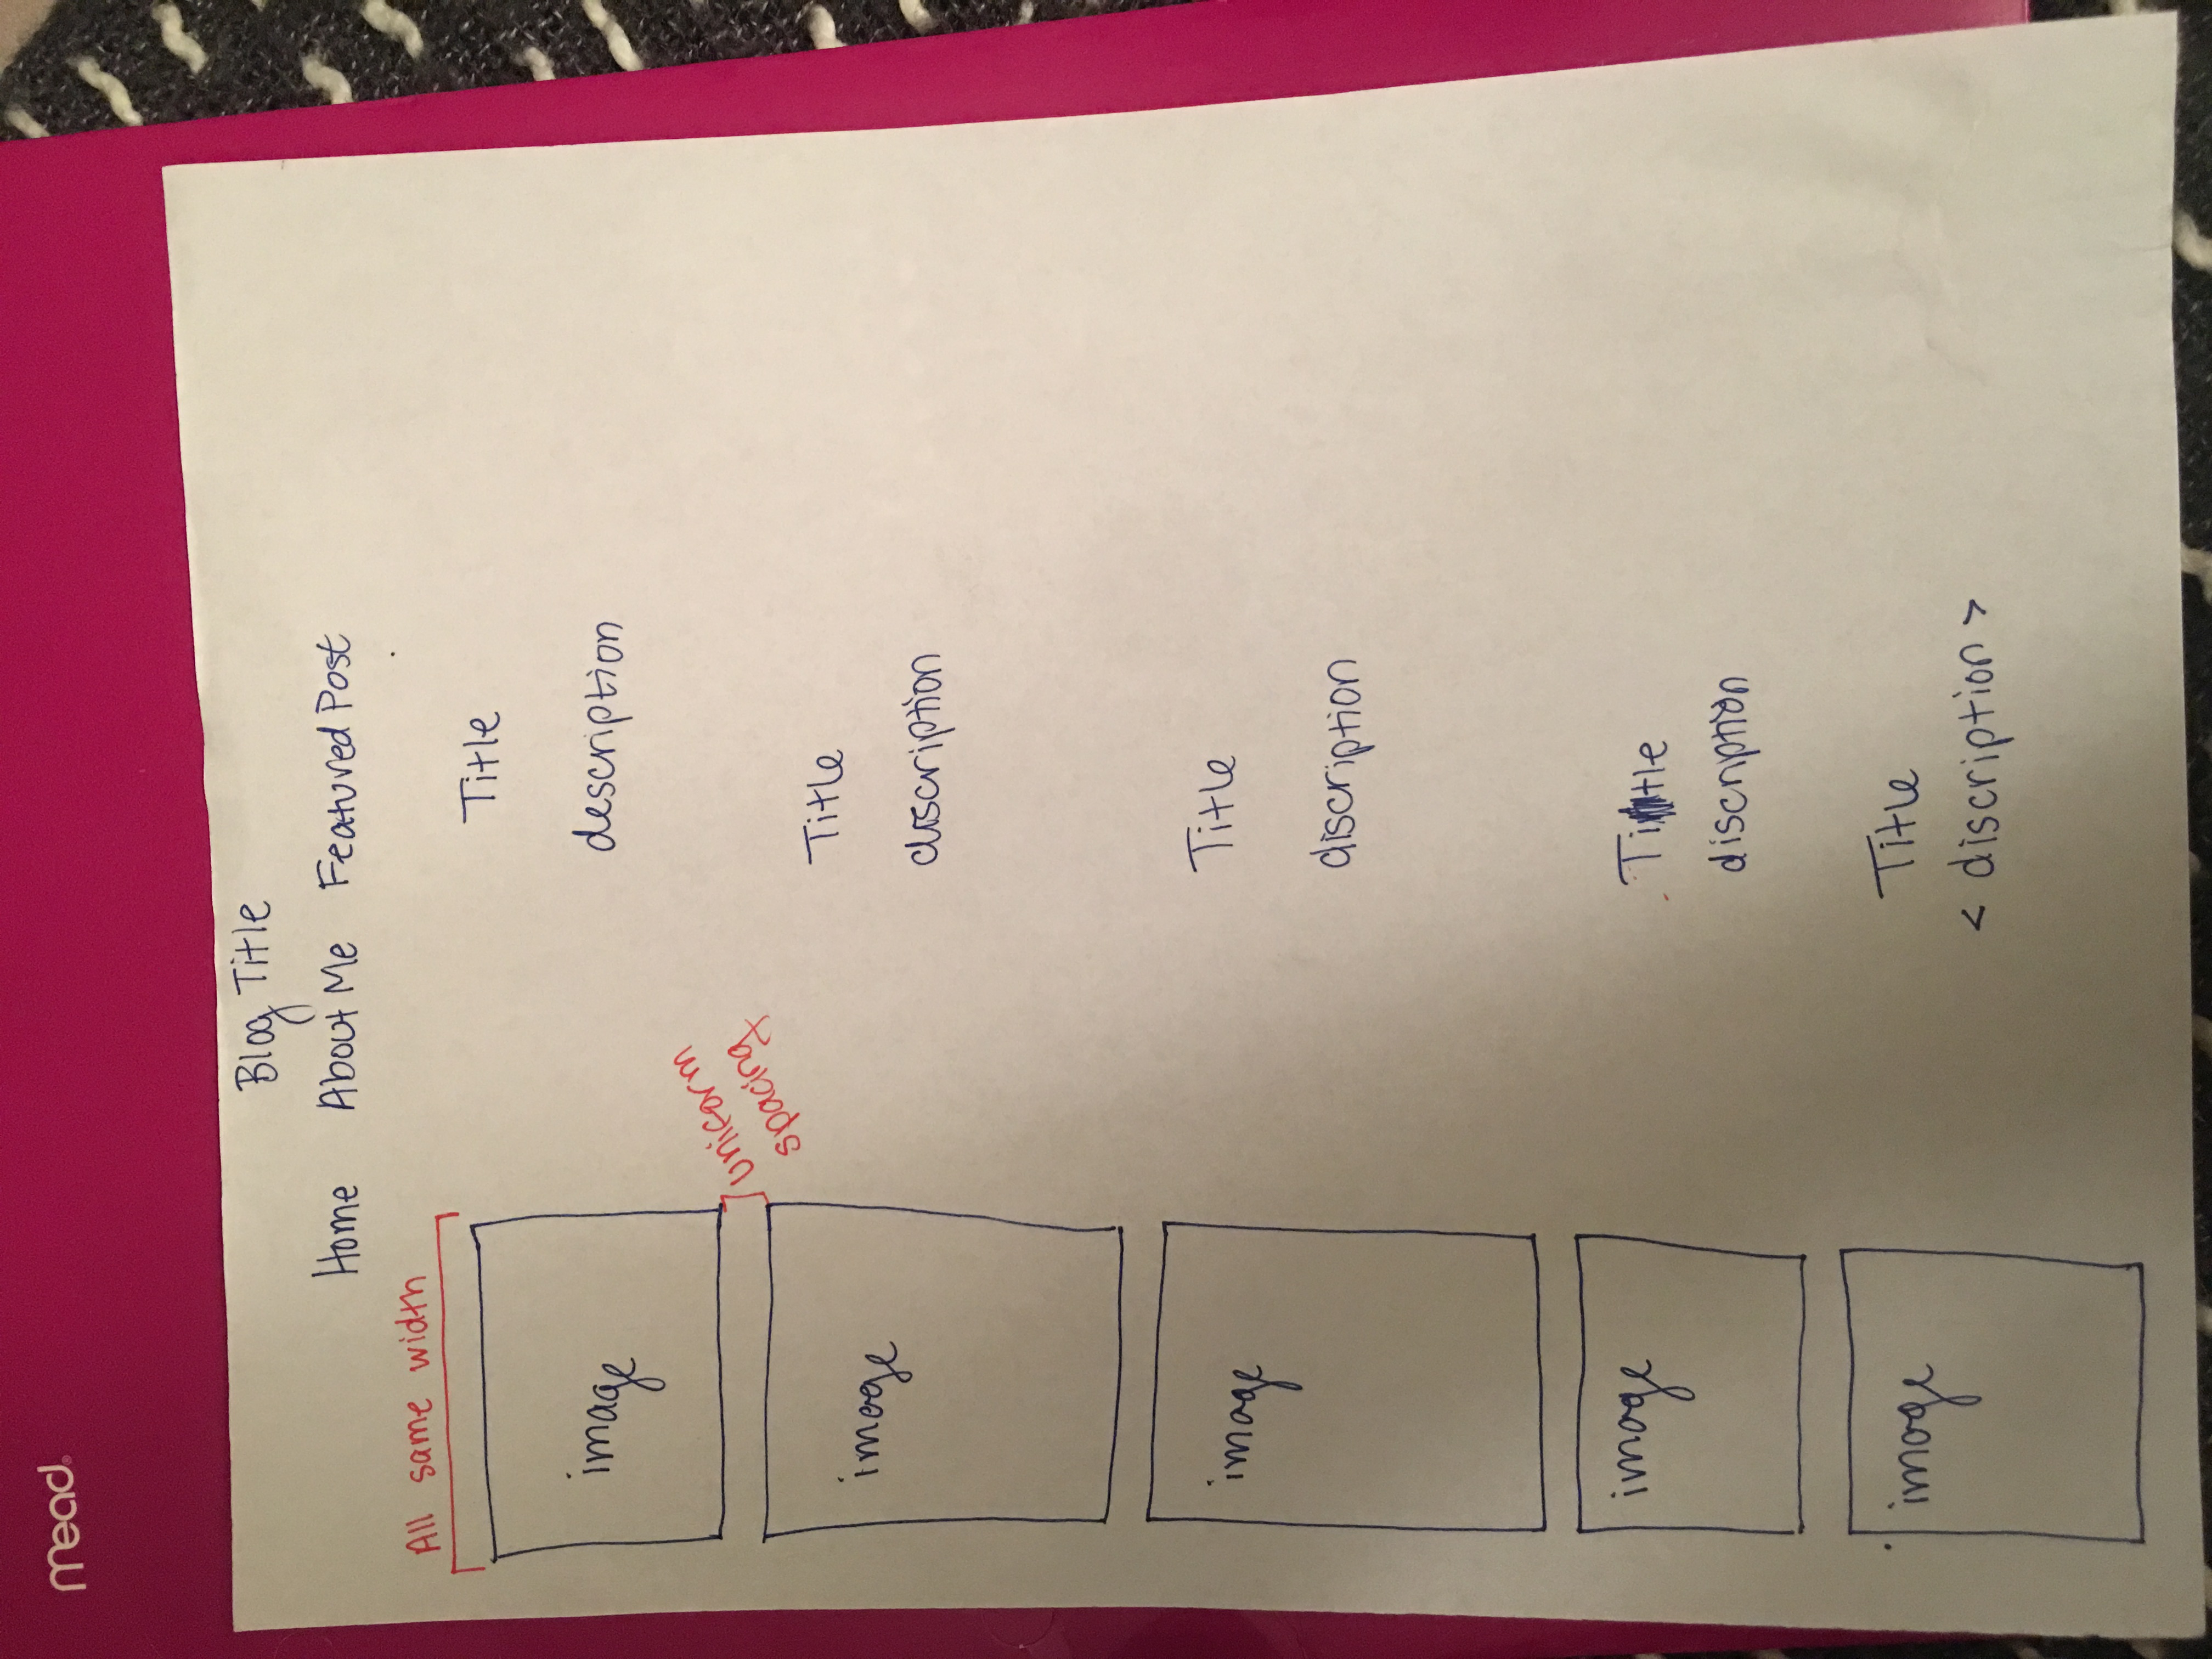 mead
Blog Title
Home About Me Featured Post
All same width
image
Title
description
uniform
spacing
image
Title
discription
image
Title
discription
image
Title
discription
image
Title
< discription >